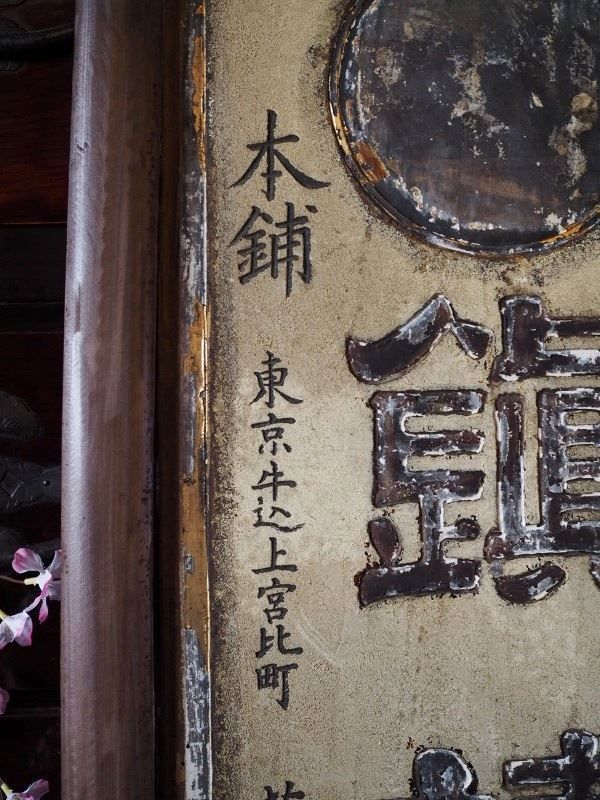 鎮
本舗
東京牛込上宮比町